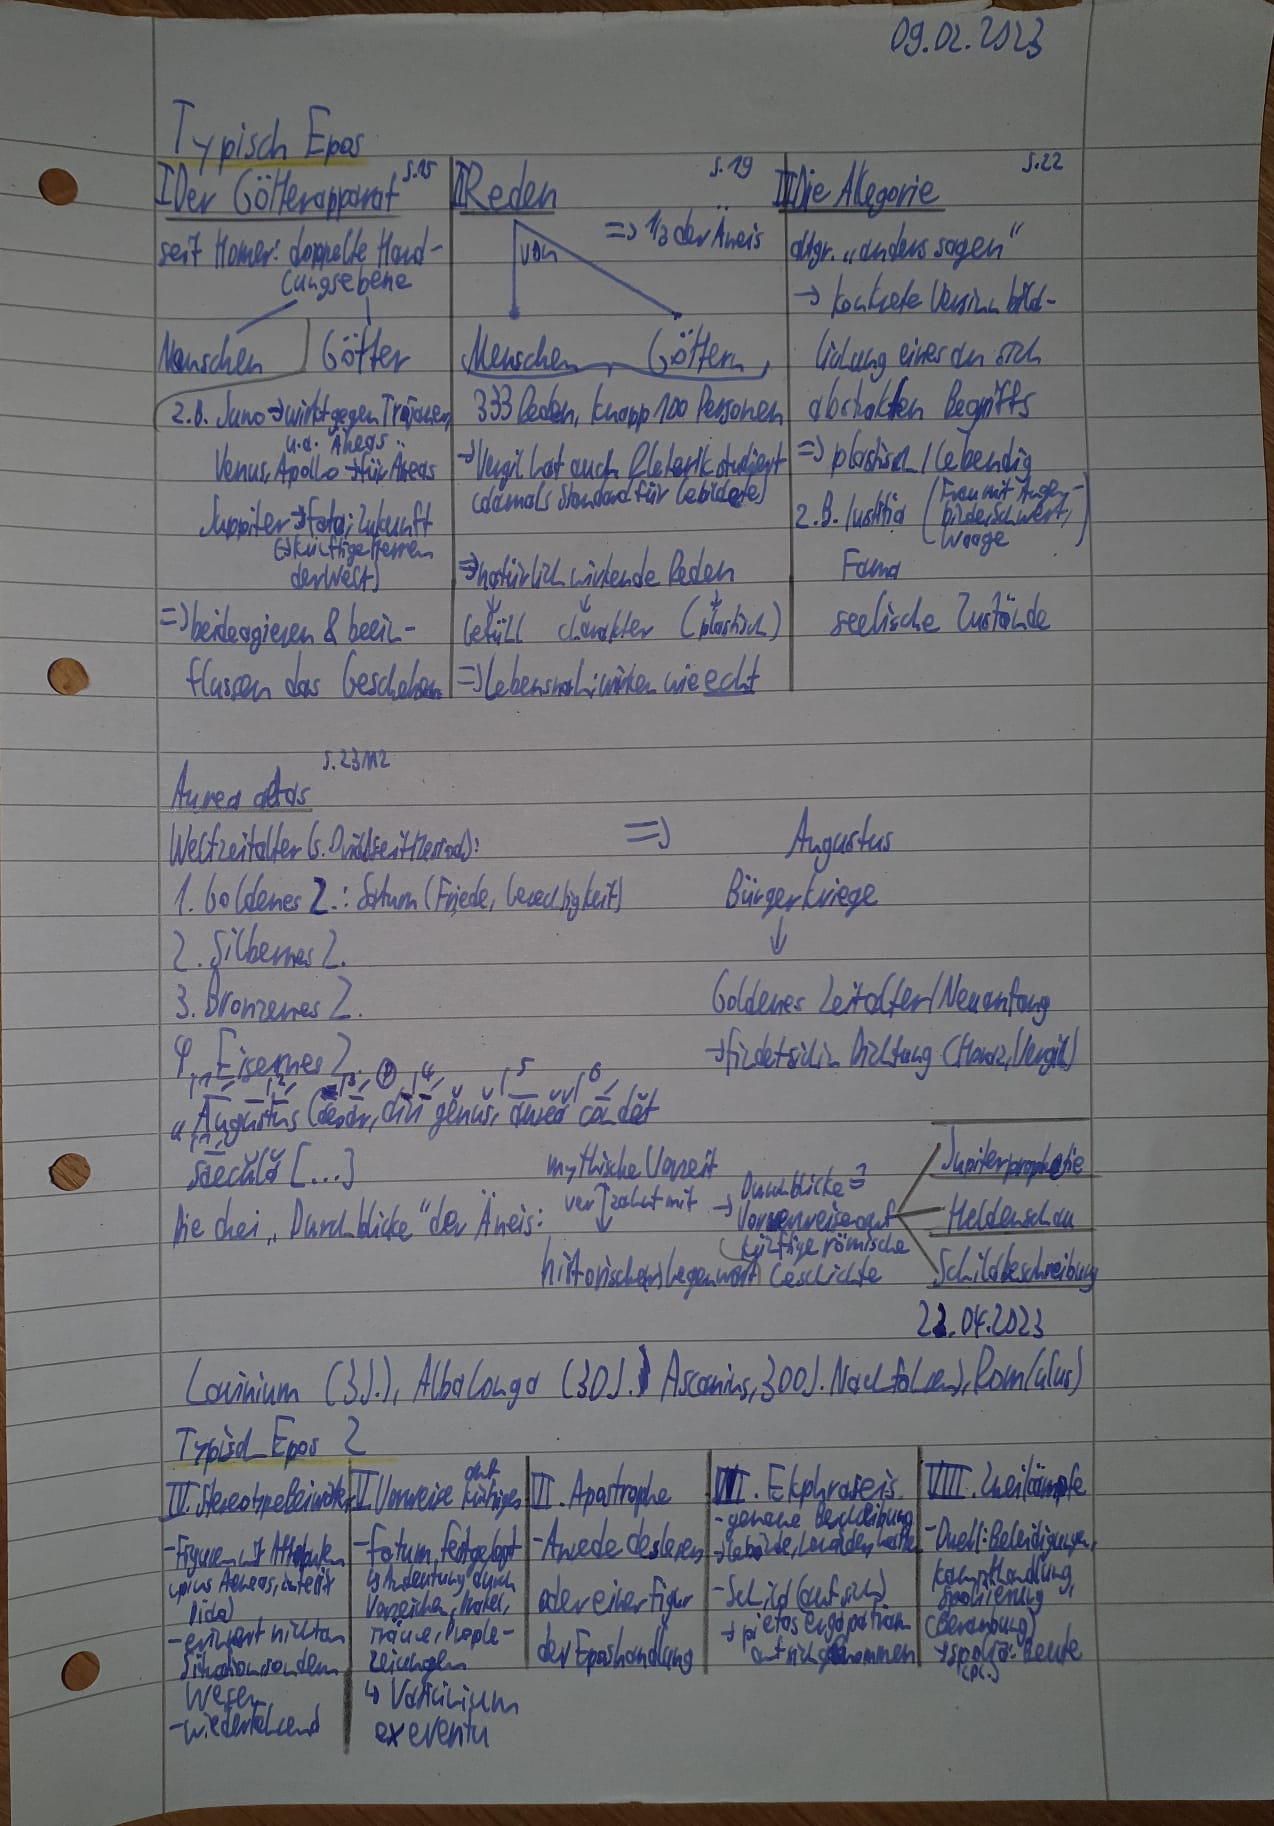 09.02.2023
Typisch Epos
I Der Götterapparat S.15
seit Homer: doppelte Hand-
lungsebene
Menschen Götter
z.B. Juno → wirkt gegen Trojaner,
u.a. Äneas
Venus, Apollo → für Äneas
Juppiter → fata; Zukunft
(→ künftige Herren
der Welt)
=> beide agieren & beein-
flussen das Geschehen
II Reden S.19
=> 1/3 der Äneis
von
Menschen, Göttern,
333 Reden, knapp 100 Personen
→ Vergil hat auch Rhetorik studiert
(damals Standard für Gebildete)
=> natürlich wirkende Reden
Gefühl Charakter (plastisch)
=> lebensnah; wirken wie echt
III Die Allegorie S.22
altgr. „anders sagen"
→ konkrete Versinnbild-
lichung eines an sich
abstrakten Begriffs
=> plastisch/lebendig
z.B. Iustitia (Frau mit Augen-
binde, Schwert,
Waage)
Fama
seelische Zustände
S.23 M2
Aurea aetas
Weltzeitalter (s. Hesiod):
1. Goldenes Z.: Saturn (Friede, Gerechtigkeit)
2. Silbernes Z.
3. Bronzenes Z.
4. Eisernes Z.
=> Augustus
Bürgerkriege
↓
Goldenes Zeitalter/Neuanfang
→ findet sich in Dichtung (Horaz, Vergil)
1 2 3 4 5 6
„Augustus Caesar, divi genus, aurea condet
saecula [...]
Die drei „Durchblicke" der Äneis:
mythische Vorzeit
verzahnt mit
historische(r) Gegenwart
→ Durchblicke =
Vorverweise auf
künftige römische
Geschichte
Jupiterprophetie
Heldenschau
Schildbeschreibung
21.04.2023
Lavinium (3J.), Alba Longa (30J. Ascanius, 300J. Nachfahren), Rom(ulus)
Typisch Epos 2
IV. Stereotype Beiwörter
- Figuren mit Attributen
(pius Aeneas, infelix
Dido)
- erinnert nicht an
Situation sondern
Wesen
- wiederkehrend
V Vorweise auf künftiges
- Fatum, festgelegt
↳ Andeutung durch
Vorzeichen, Orakel,
Träume, Prophe-
zeiungen
↳ Vaticinium
ex eventu
VI. Apostrophe
- Anrede des Lesers
oder einer Figur
der Eposhandlung
VII. Ekphraseis
- genaue Beschreibung
→ Gebäude, Waffen
- Schild (auf sich)
→ pietas erga patriam
auf sich genommen
VIII. Zweikämpfe
- Duell: Beleidigungen,
Kampfhandlung,
Spoliierung
(Beraubung)
→ spolia: Beute
(pl.)